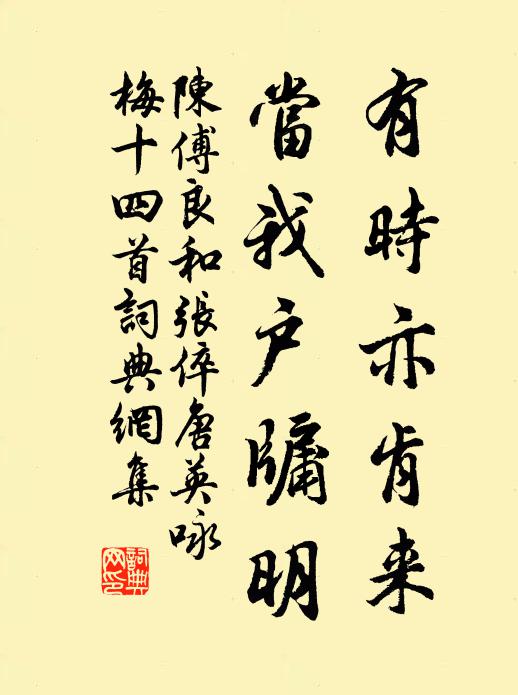 有時亦肯来
當我户牖明
陳傅良和張倅唐英咏
梅十四首詞典網集
詞典网印